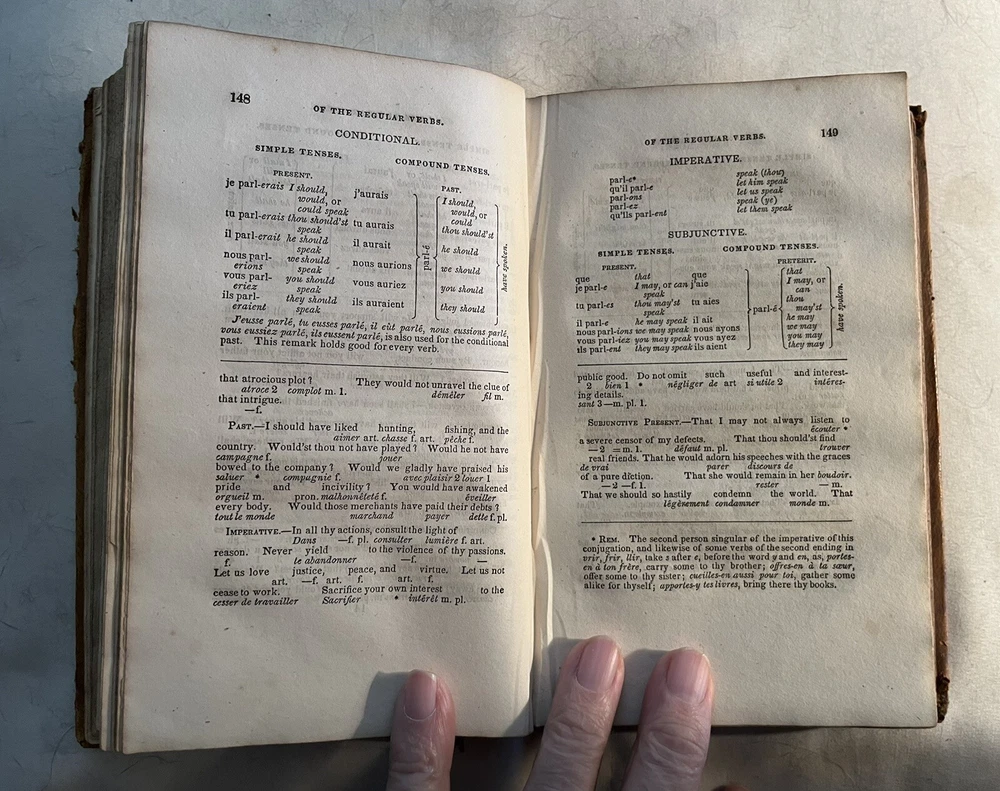 148
OF THE REGULAR VERBS.
CONDITIONAL.
SIMPLE TENSES.
COMPOUND TENSES.
PRESENT.
PAST.
je parl-erais I should, j'aurais I should,
would, or would, or
could speak could
tu parl-erais thou should'st tu aurais thou should'st
speak
il parl-erait he should il aurait he should
speak
nous parl- we should nous aurions we should
erions speak
vous parl- you should vous auriez you should
eriez speak
ils parl- they should ils auraient they should
eraient speak
parl-é
have spoken.
J'eusse parlé, tu eusses parlé, il eût parlé, nous eussions parlé,
vous eussiez parlé, ils eussent parlé, is also used for the conditional
past. This remark holds good for every verb.
that atrocious plot ? They would not unravel the clue of
atroce 2 complot m. 1. démêler fil m.
that intrigue.
—f.
PAST.—I should have liked hunting, fishing, and the
aimer art. chasse f. art. pêche f.
country. Would'st thou not have played ? Would he not have
campagne f. jouer
bowed to the company ? Would we gladly have praised his
saluer * compagnie f. avec plaisir 2 louer 1
pride and incivility ? You would have awakened
orgueil m. pron. malhonnêteté f. éveiller
every body. Would those merchants have paid their debts ?
tout le monde marchand payer dette f. pl.
IMPERATIVE.—In all thy actions, consult the light of
Dans —f. pl. consulter lumière f. art.
reason. Never yield to the violence of thy passions.
f. te abandonner —f. —
Let us love justice, peace, and virtue. Let us not
art. —f. art. f. art. f.
cease to work. Sacrifice your own interest to the
cesser de travailler Sacrifier * intérêt m. pl.
OF THE REGULAR VERBS.
149
IMPERATIVE.
parl-e* speak (thou)
qu'il parl-e let him speak
parl-ons let us speak
parl-ez speak (ye)
qu'ils parl-ent let them speak
SUBJUNCTIVE.
SIMPLE TENSES.
COMPOUND TENSES.
PRESENT.
PRETERIT.
que that que that
je parl-e I may, or can j'aie I may, or
speak can
tu parl-es thou may'st tu aies thou
speak may'st
il parl-e he may speak il ait he may
nous parl-ions we may speak nous ayons we may
vous parl-iez you may speak vous ayez you may
ils parl-ent they may speak ils aient they may
parl-é
have spoken.
public good. Do not omit such useful and interest-
2 bien 1 * négliger de art si utile 2 intéres-
ing details.
sant 3—m. pl. 1.
SUBJUNCTIVE PRESENT.—That I may not always listen to
écouter *
a severe censor of my defects. That thou should'st find
—2 =m. 1. défaut m. pl. trouver
real friends. That he would adorn his speeches with the graces
de vrai parer discours de
of a pure diction. That she would remain in her boudoir.
—2 —f. 1. rester — m.
That we should so hastily condemn the world. That
légèrement condamner monde m.
* REM. The second person singular of the imperative of this
conjugation, and likewise of some verbs of the second ending in
vrir, frir, llir, take s after e, before the word y and en, as, portes-
en à ton frère, carry some to thy brother; offres-en à ta sœur,
offer some to thy sister; cueilles-en aussi pour toi, gather some
alike for thyself; apportes-y tes livres, bring there thy books.